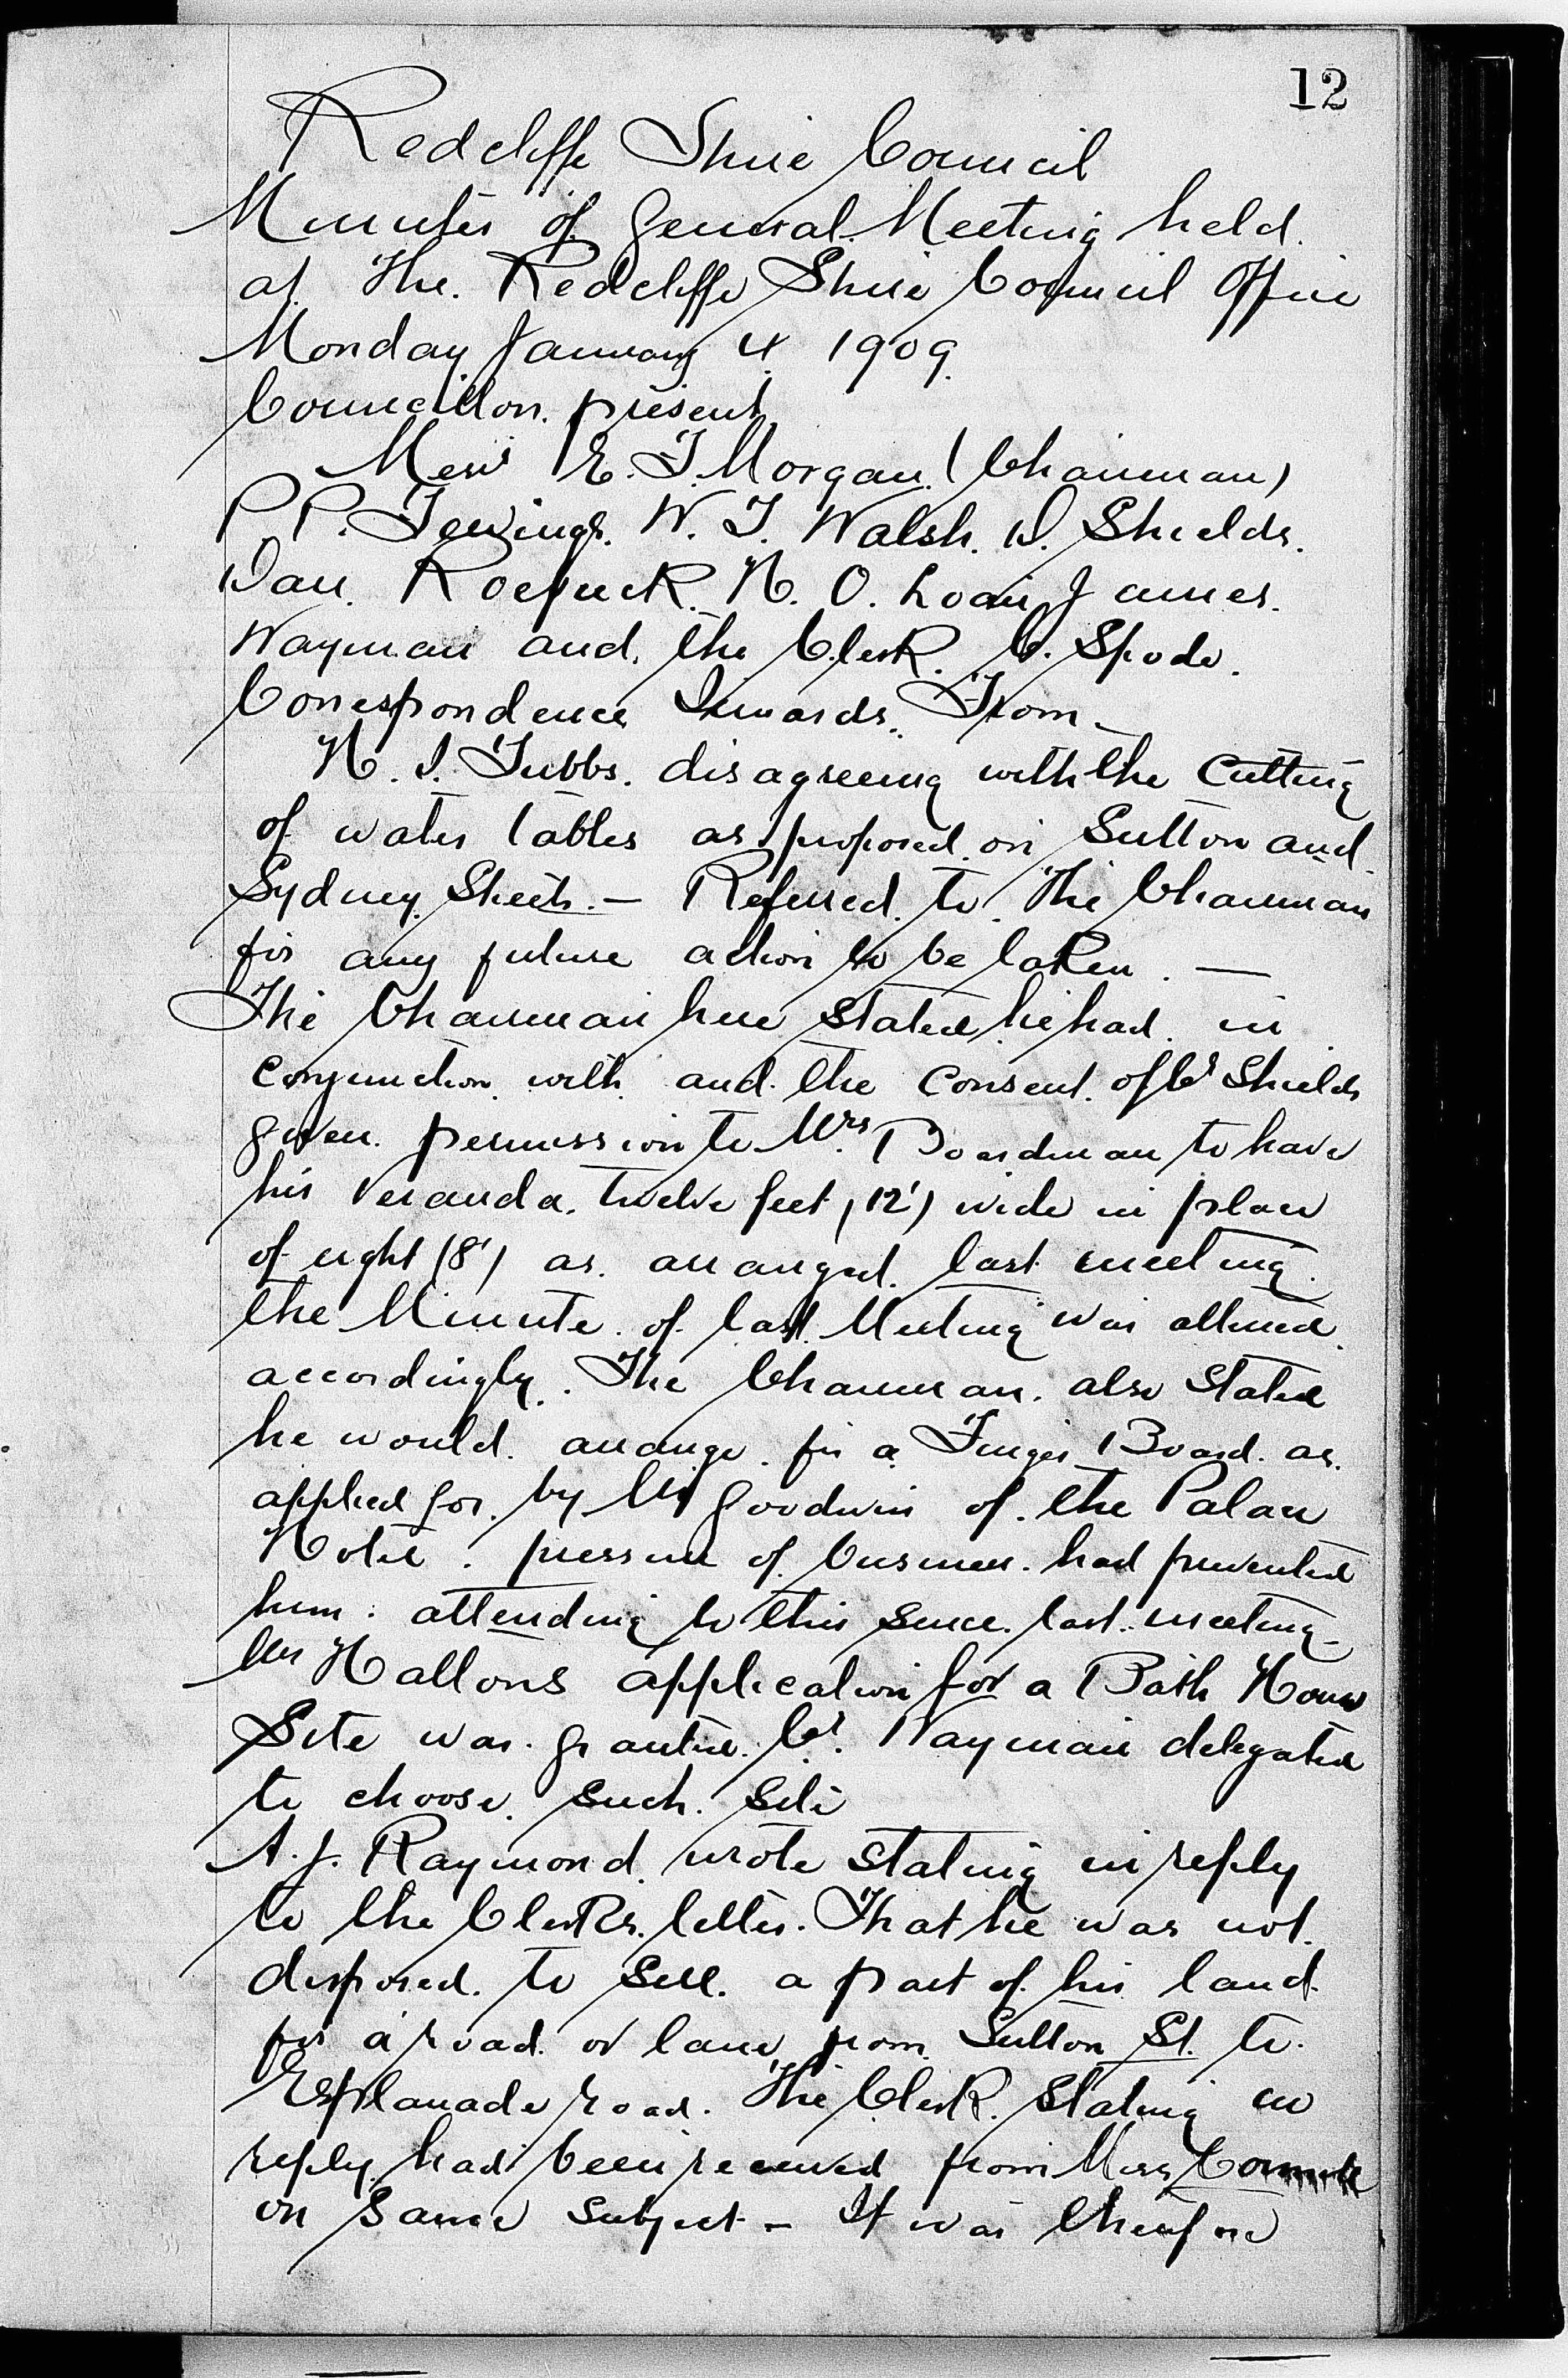 12
Redcliffe Shire Council
Minutes of General Meeting held
at The Redcliffe Shire Council Office
Monday January 4 1909
Councillors present
Messrs E. T. Morgan (Chairman)
P. P. W. T. Walsh. D. Shields.
Dan. Roebuck. H. O. Loain James.
Wayman and the Clerk. C. Spode.
Correspondence Inwards. From -
H. I. Tubbs. disagreeing with the Cutting
of water tables as proposed on Sutton and
Sydney Streets. — Referred to The Chairman
for any future action to be taken. —
The Chairman here stated he had in
conjunction with and the Consent of Cr Shields
given permission to Mrs Boardman to have
his Veranda. twelve feet (12') wide in place
of eight (8') as arranged last meeting.
the Minute of last Meeting was altered
accordingly. The Chairman also stated
he would arrange for a Finger Board as
applied for by Mr Goodwin of the Palace
Hotel. pressure of business had prevented
him attending to this since last meeting -
Mr Hallons application for a Bath House
Site was granted. Cr. Wayman delegated
to choose such Site
A. J. Raymond wrote stating in reply
to the Clerks letter. That he was not
disposed to sell a part of his land
for a road or lane from Sutton St. to
Esplanade road. The Clerk Stating no
reply had been received from Miss
on same subject - It was therefore